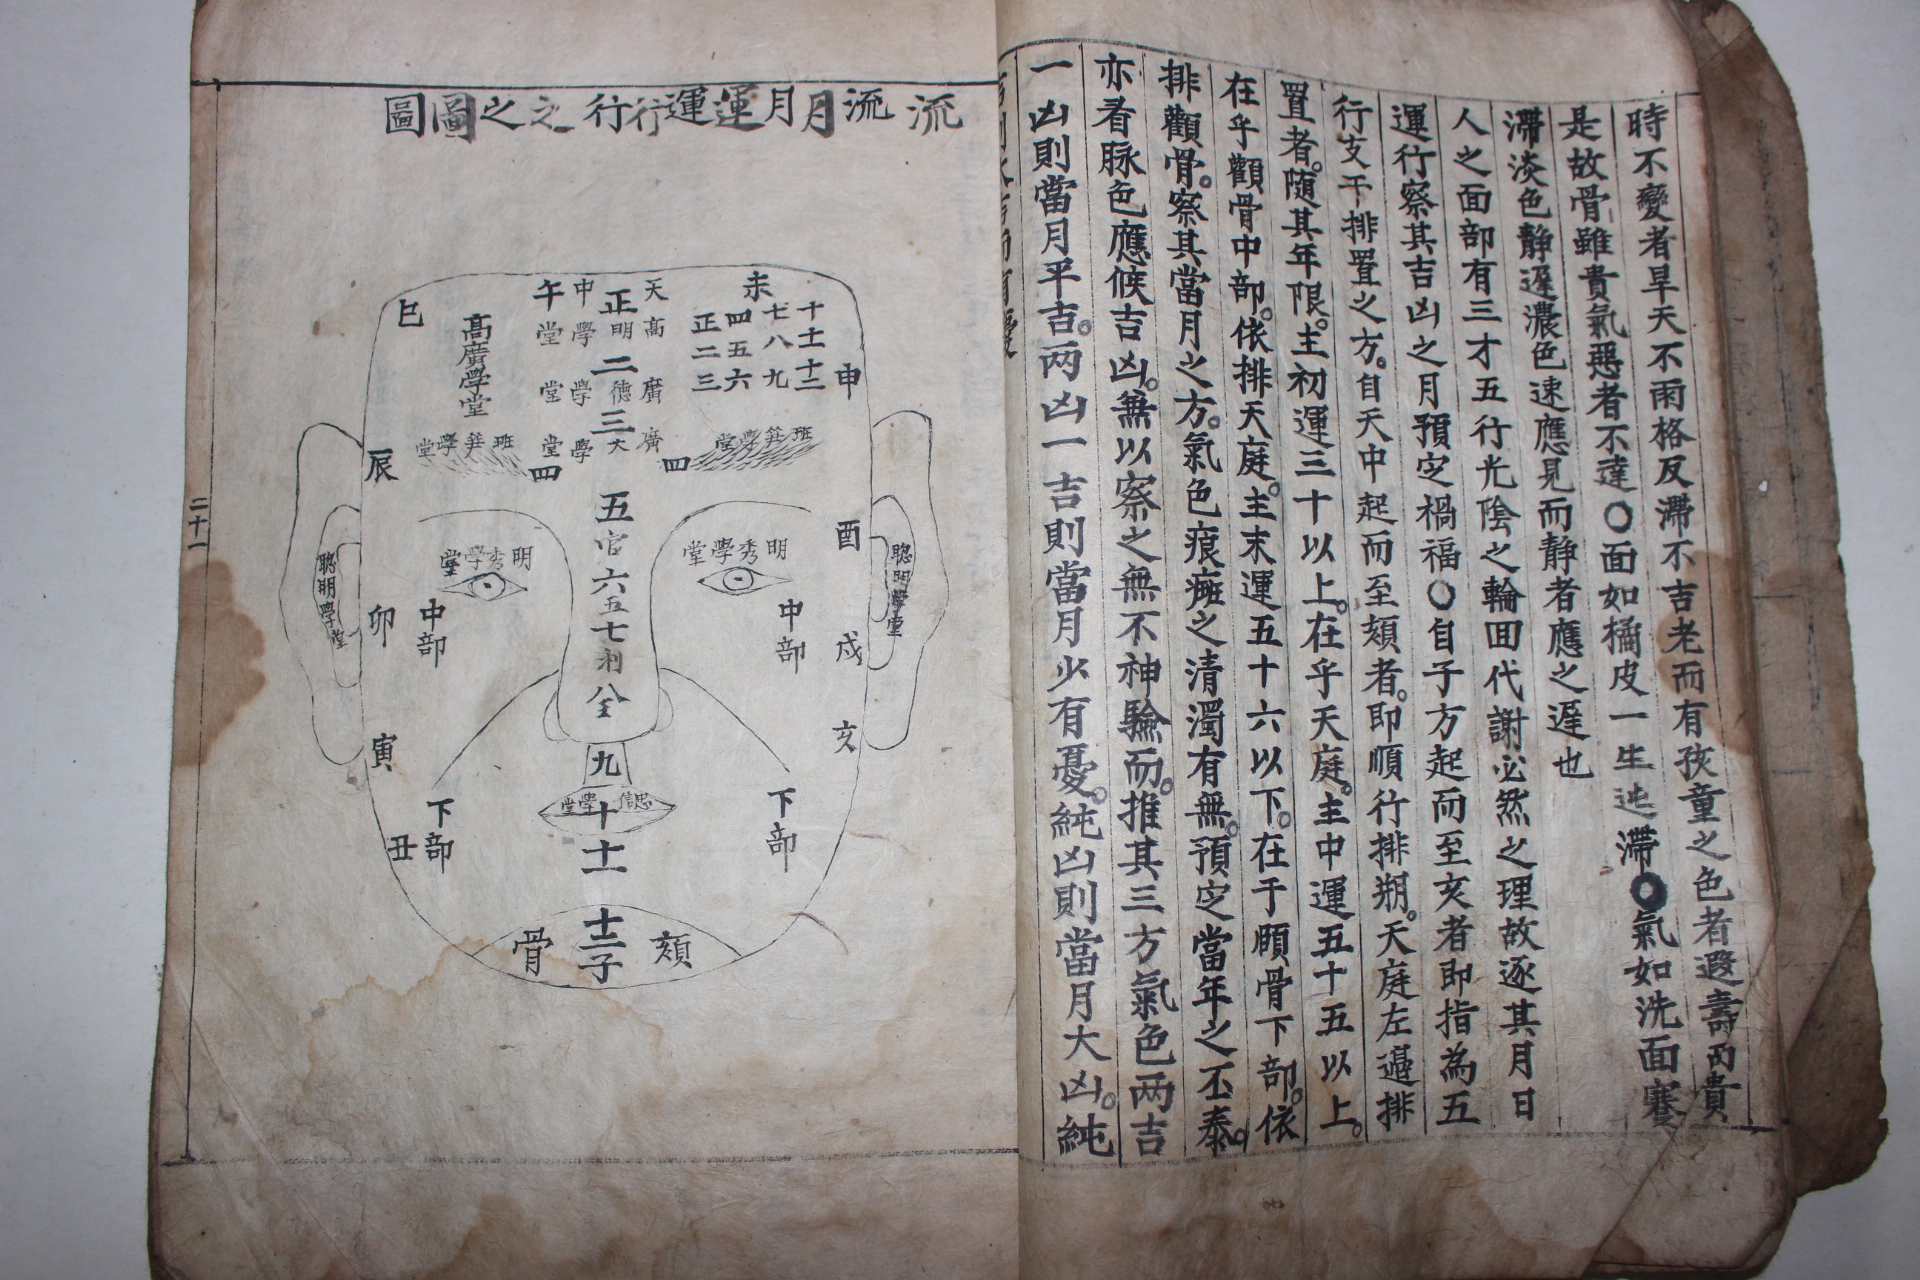 時不變者旱天不雨格反滯不吉老而有孩童之色者遐壽而貴
是故骨雖貴氣惡者不達〇面如橘皮一生迍滯〇氣如洗面蹇
滯淡色靜遲濃色速應見而靜者應之遲也
人之面部有三才五行光陰之輪回代謝必然之理故逐其月日
運行察其吉凶之月預定禍福〇自子方起而至亥者即指為五
行支干排置之方。自天中起而至頦者。即順行排朔。天庭左邉排
置者。随其年限。主初運三十以上。在乎天庭。主中運五十五以上。
在乎顴骨中部。依排天庭。主末運五十六以下。在于頤骨下部。依
排顴骨。察其當月之方。氣色痕癍之清濁有無。預定當年之丕泰。
亦看脉色應候吉凶。無以察之無不神驗而。推其三方氣色两吉
一凶則當月平吉。两凶一吉則當月少有憂。純凶則當月大凶。純
流流月月運運行行之之圖圖
未
十 十一 十二
七 八 九
四 五 六
正 二 三
申
天中
正
高明學堂
二
廣德學堂
三
廣大學堂
午
高廣學堂
巳
班笋學堂
班笋學堂
四
四
辰
五
官
六
五
七
利
八
全
明秀學堂
明秀學堂
聰明學堂
聰明學堂
酉
戌
亥
中部
中部
卯
寅
九
忠信學堂
十
十一
下部
下部
丑
十二
子
頦骨
二十一